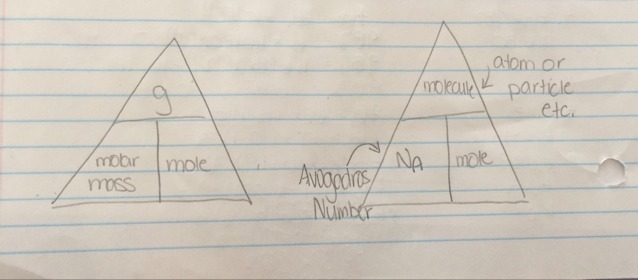 g
molar
mass
mole
molecule
atom or
particle
etc.
NA
mole
Avogadros
Number